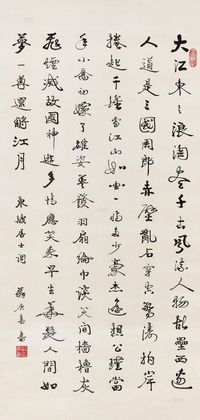 大江東去浪淘盡千古風流人物故壘西邊
人道是三國周郎赤壁亂石穿空驚濤拍岸
捲起千堆雪江山如畫一時多少豪傑遙想公瑾當
年小喬初嫁了雄姿英發羽扇綸巾談笑間檣櫓灰
飛煙滅故國神遊多情應笑我早生華髮人間如
夢一尊還酹江月
東坡居士詞